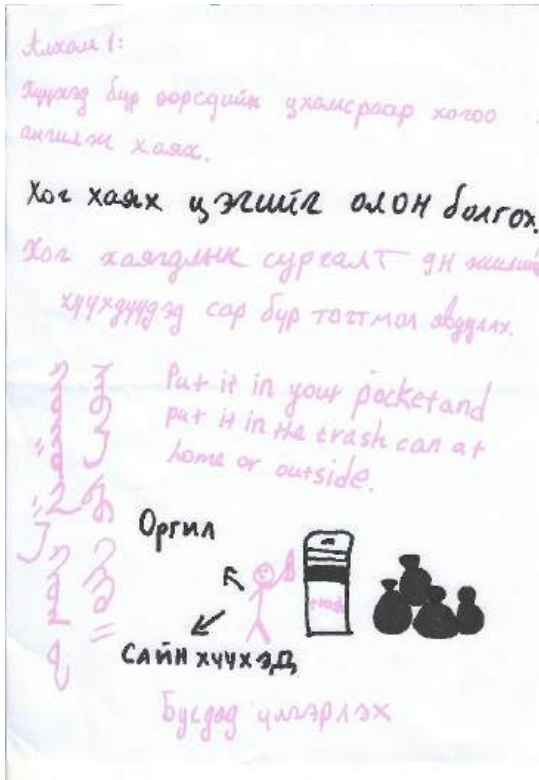 Алхам 1:
Хүүхэд бүр өөрсдийн ухамсраар хогоо
ангилж хаях.
Хог хаях цэгийг олон болгох.
Хог хаягдлын сургалт ДН жилийн
хүүхдүүдэд сар бүр тогтмол явуулах.
Put it in your pocket and
put it in the trash can at
home or outside.
Оргил
trash
САЙН ХҮҮХЭД
Бусдад үлгэрлэх